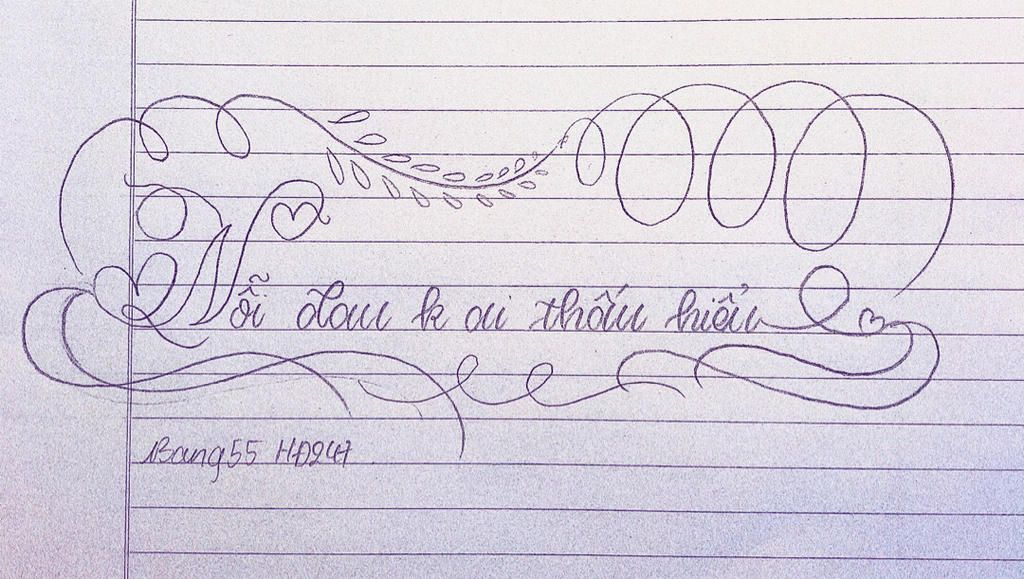 Nỗi đau k ai thấu hiểu
Bang55 HĐ247